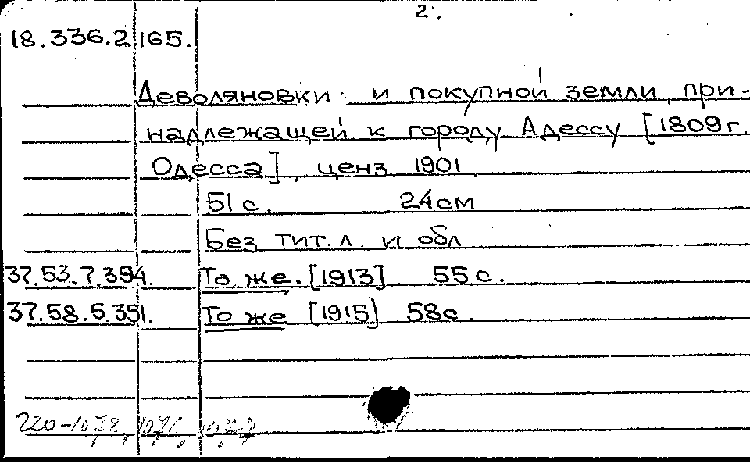 2.
18.336.2.165.
Деволяновки и покупной земли, при-
надлежащей к городу Адессу [1809 г.
Одесса], ценз 1901
51 с. 24 см
Без тит. л. и обл
37.53.7.394. То же. [1913] 55 с.
37.58.5.351. То же [1915] 58 с.